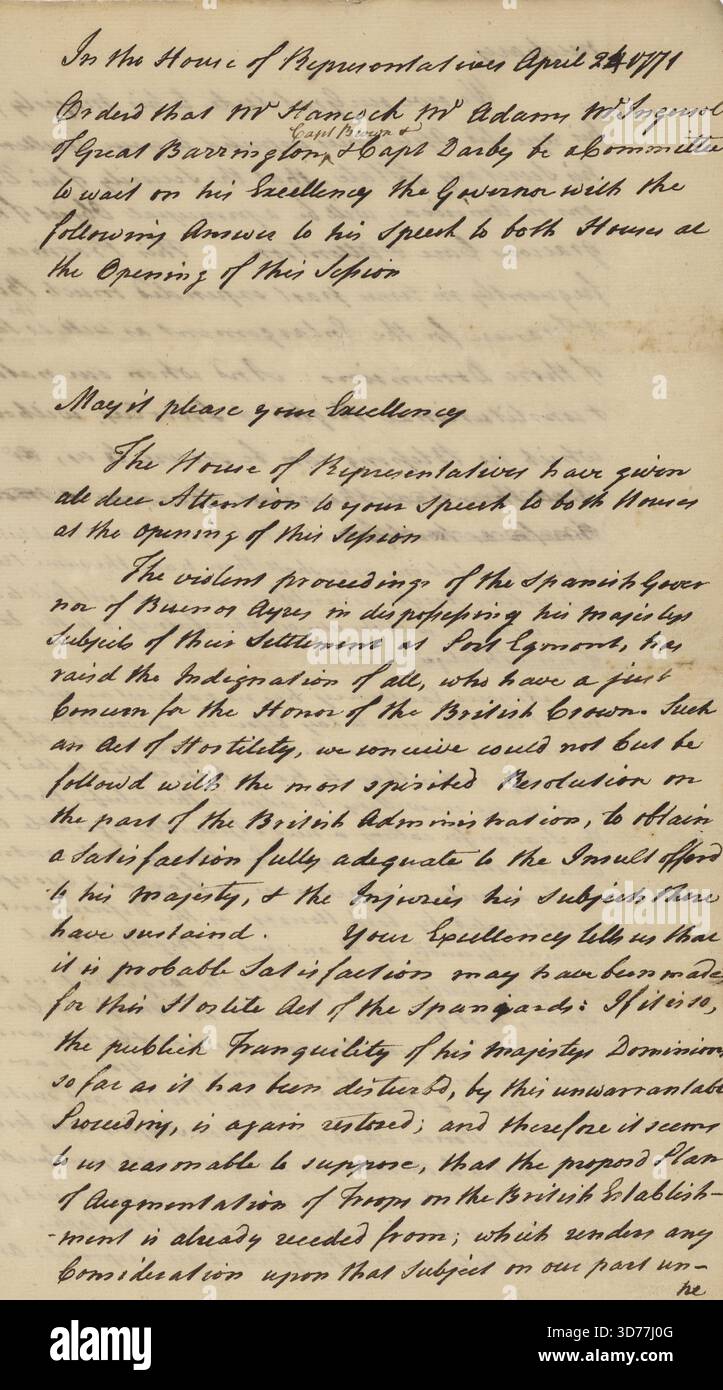 In the House of Representatives April 24 1771
Orderd that Mr Hancock Mr Adams Mr Ingersol
Capt Brown &
of Great Barrington, & Capt Darby be a Committee
to wait on his Excellency the Governor with the
following Answer to his Speech to both Houses at
the Opening of this Session
May it please your Excellency
The House of Representatives have given
all due Attention to your Speech to both Houses
at the opening of this Session
The violent proceedings of the Spanish Gover
nor of Buenos Ayres in dispossessing his majestys
Subjects of their Settlement at Port Egmont, has
raisd the Indignation of all, who have a just
Concern for the Honor of the British Crown. Such
an Act of Hostility, we conceive could not but be
followd with the most spirited Resolution on
the part of the British Administration, to obtain
a Satisfaction fully adequate to the Insult offerd
to his Majesty, & the Injuries his Subjects there
have sustaind. Your Excellency tells us that
it is probable Satisfaction may have been made
for this Hostile Act of the Spaniards: If it is so,
the publick Tranquility of his majestys Dominions
so far as it has been disturbd, by this unwarrantable
Proceeding, is again restored; and therefore it seems
to us reasonable to suppose, that the proposd Plan
of Augmentation of Troops on the British Establish-
-ment is already receded from; which renders any
Consideration upon that Subject on our part un-
ne
alamy
Image ID: 3D77J0G
www.alamy.com